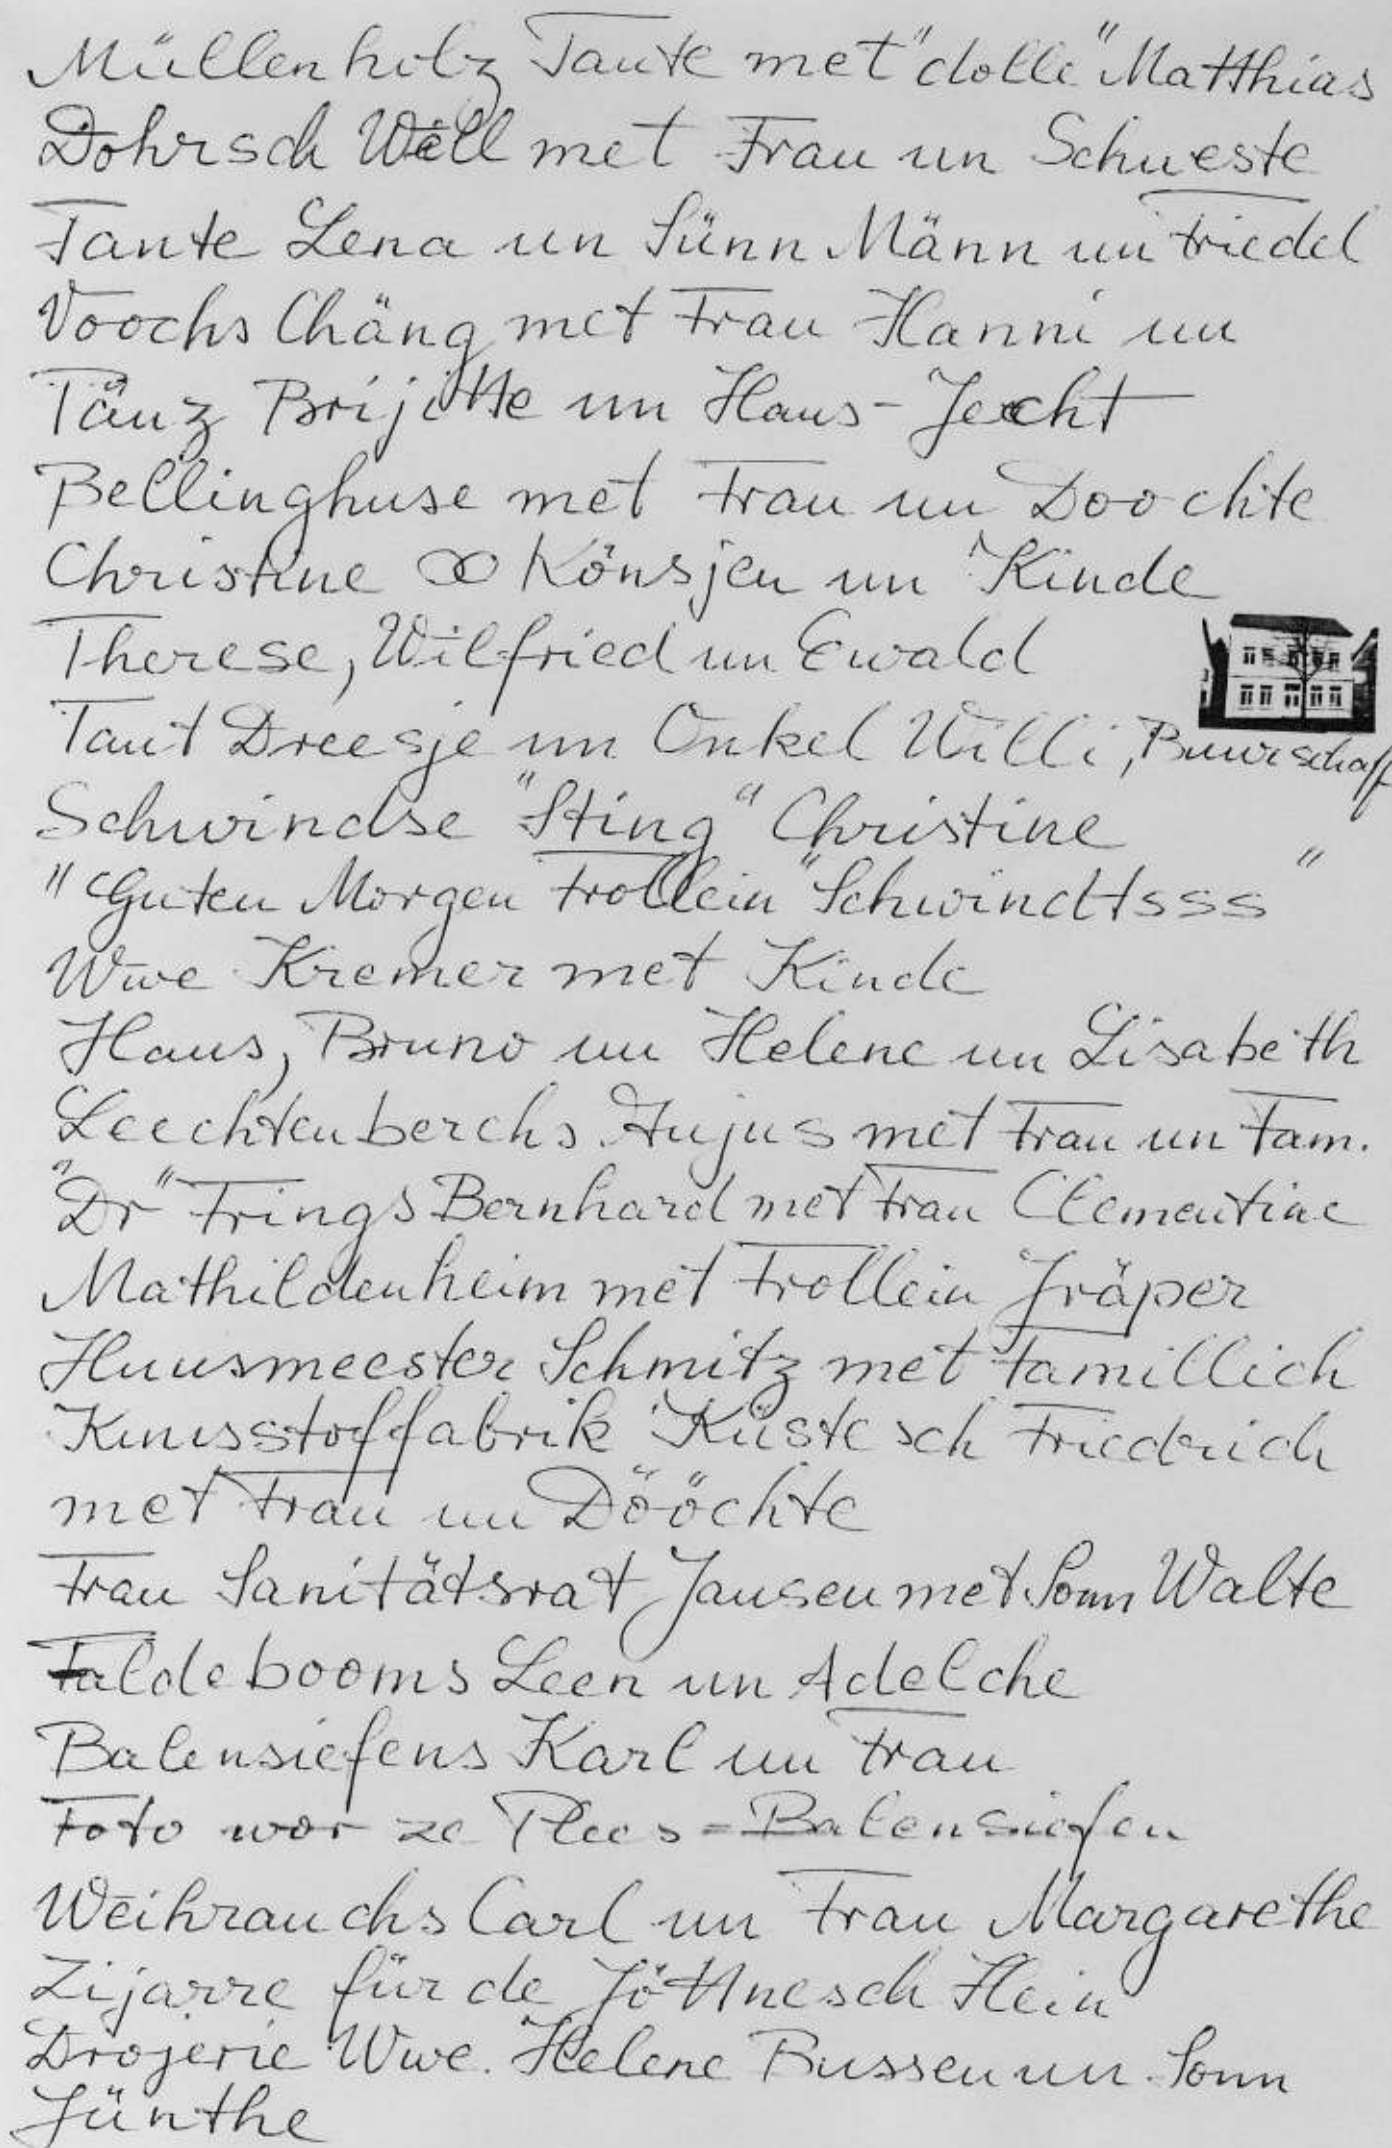 Müllenholz Tante met "dolle" Matthias
Dohrsch Will met Frau un Schweste
Tante Lena un Sünn Männ un Friedel
Voochs Chäng met Frau Hanni un
Tänz Brijitte un Hans-Jecht
Bellinghuse met Frau un Doochte
Christine ∞ Könsjen un Kinde
Therese, Wilfried un Ewald
Tant Dreesje un Onkel Willi, Buurschaff
Schwindse "Sting" Christine
"Guten Morgen Frollein "Schwindtsss"
Wwe Kremer met Kinde
Hans, Bruno un Helene un Lisabeth
Leechtenberchs Aujus met Frau un Fam.
"Dr" Frings Bernhard met Frau Clementine
Mathildenheim met Frollein Jräper
Huusmeester Schmitz met Famillich
Kunsstoffabrik Küstesch Friedrich
met Frau un Dööchte
Frau Sanitätsrat Jansen met Sonn Walte
Faldebooms Leen un Adelche
Balensiefens Karl un Frau
Foto wor ze Plees = Balensiefen
Weihrauchs Carl un Frau Margarethe
Zijarre für de Jöttnesch Hein
Drojerie Wwe. Helene Bussen un Sonn
Jünthe